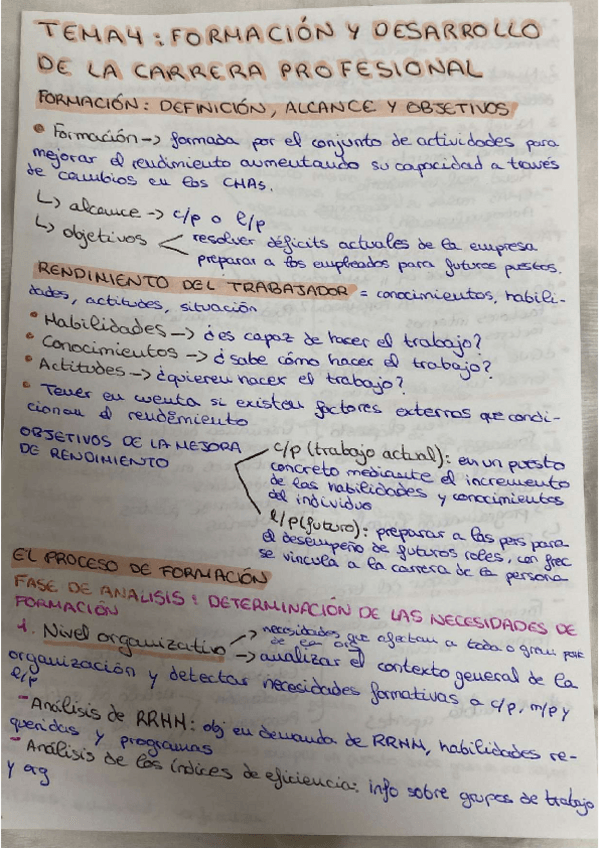 TEMA4: FORMACIÓN Y DESARROLLO
DE LA CARRERA PROFESIONAL
FORMACIÓN: DEFINICIÓN, ALCANCE Y OBJETIVOS
• Formación -> formada por el conjunto de actividades para
mejorar el rendimiento aumentando su capacidad a través
de cambios en los CHAs.
↳ alcance -> c/p o l/p
↳ objetivos < resolver déficits actuales de la empresa
preparar a los empleados para futuros puestos.
RENDIMIENTO DEL TRABAJADOR = conocimientos, habili-
dades, actitudes, situación
• Habilidades -> ¿es capaz de hacer el trabajo?
• Conocimientos -> ¿sabe cómo hacer el trabajo?
• Actitudes -> ¿quieren hacer el trabajo?
• Tener en cuenta si existen factores externos que condi-
cionan el rendimiento
OBJETIVOS DE LA MEJORA
DE RENDIMIENTO
c/p (trabajo actual): en un puesto
concreto mediante el incremento
de las habilidades y conocimientos
del individuo
l/p (futuro): preparar a las pers para
el desempeño de futuros roles, con frec
se vincula a la carrera de la persona
EL PROCESO DE FORMACIÓN
FASE DE ANÁLISIS: DETERMINACIÓN DE LAS NECESIDADES DE
FORMACIÓN
1. Nivel organizativo -> necesidades que afectan a toda o gran parte
de la org
-> analizar el contexto general de la
organización y detectar necesidades formativas a c/p, m/p y
l/p
- Análisis de RRHH: obj en demanda de RRHH, habilidades re-
queridas y programas
- Análisis de los índices de eficiencia: info sobre grupos de trabajo
y org